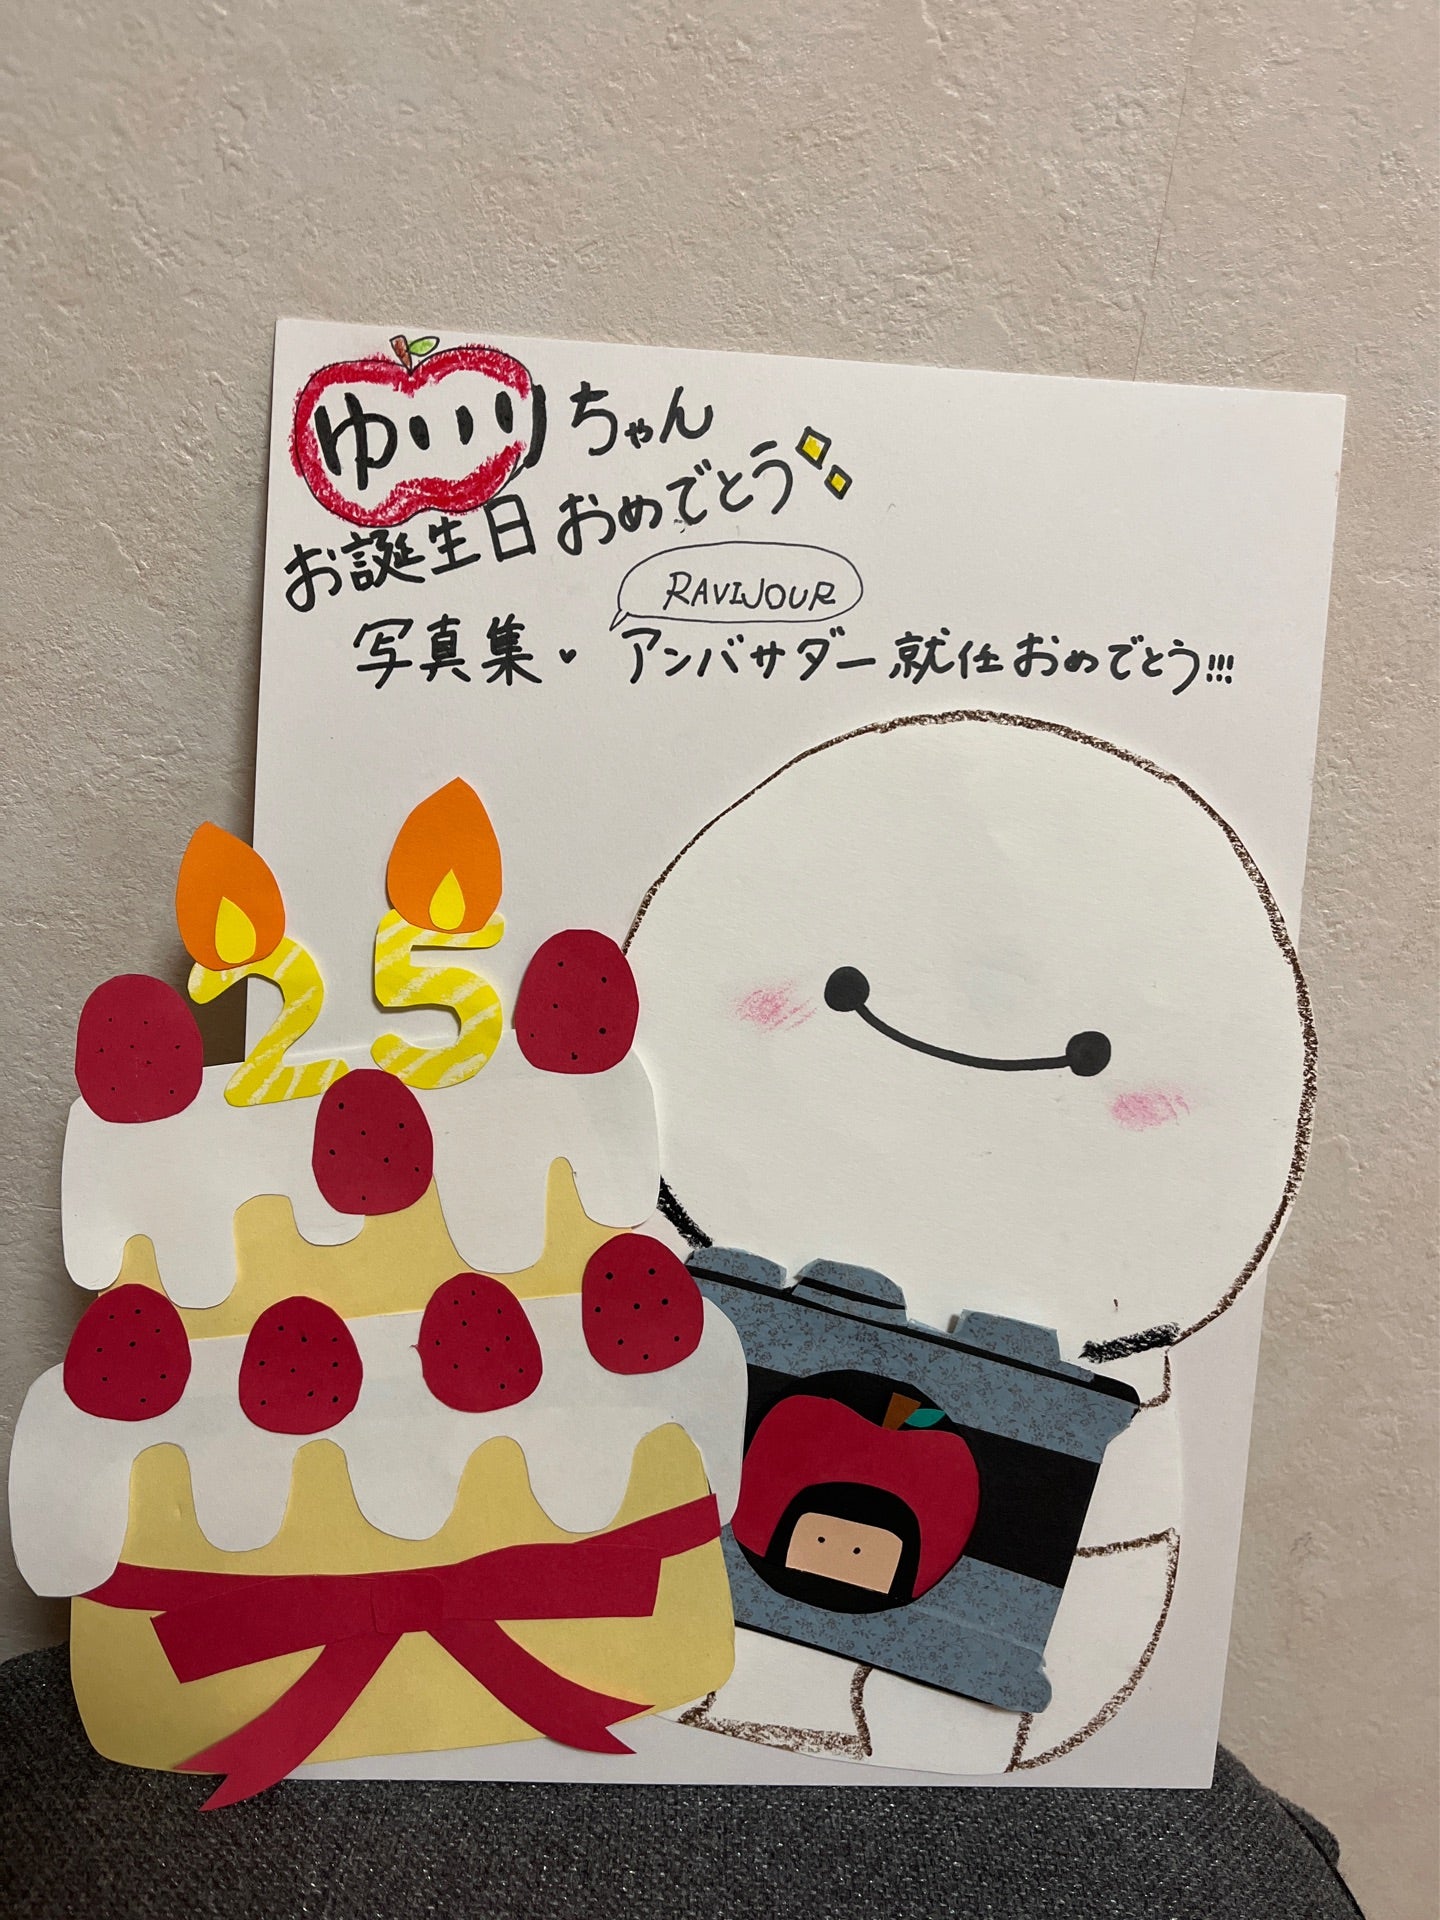 ゆいりちゃん
お誕生日おめでとう
RAVIJOUR
写真集・アンバサダー就任おめでとう!!!
25